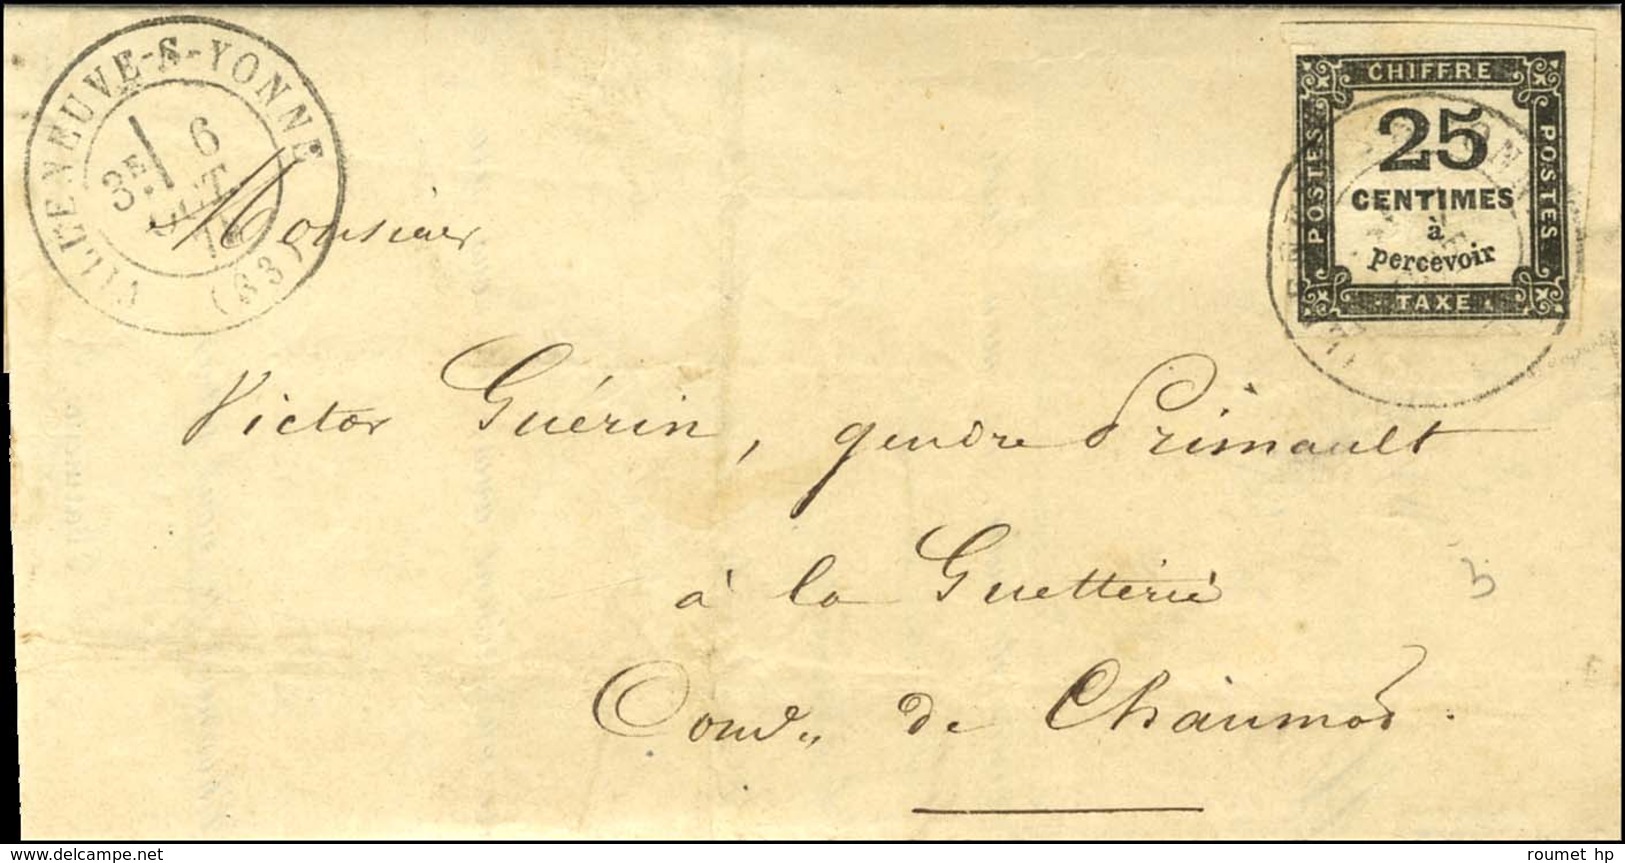 VILLENEUVE-S-YONNE
3E 6
OCT.
(83)
CHIFFRE
POSTES
25
CENTIMES
à
percevoir
POSTES
TAXE
Monsieur
Victor Guérin, gendre Primault
à la Guetterie
de Chaumot.
roumet hp